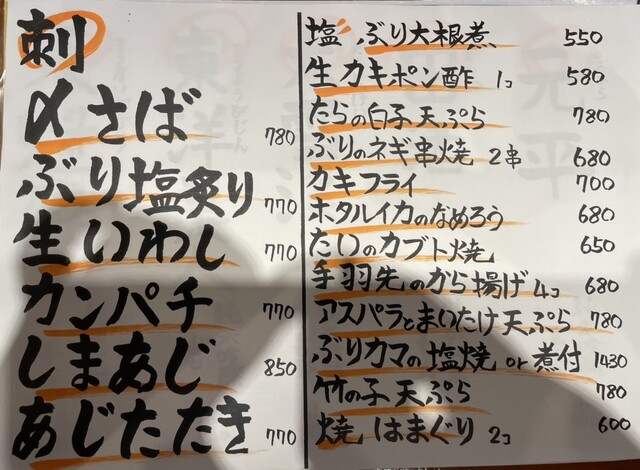 刺
〆さば 780
ぶり塩炙り 770
生いわし 770
カンパチ 770
しまあじ 850
あじたたき 770
塩ぶり大根煮 550
生カキポン酢 1コ 580
たらの白子天ぷら 780
ぶりのネギ串焼 2串 680
カキフライ 700
ホタルイカのなめろう 680
たいのカブト焼 650
手羽先のから揚げ 4コ 680
アスパラとまいたけ天ぷら 780
ぶりカマの塩焼 or 煮付 1430
竹の子天ぷら 780
焼はまぐり 2コ 600